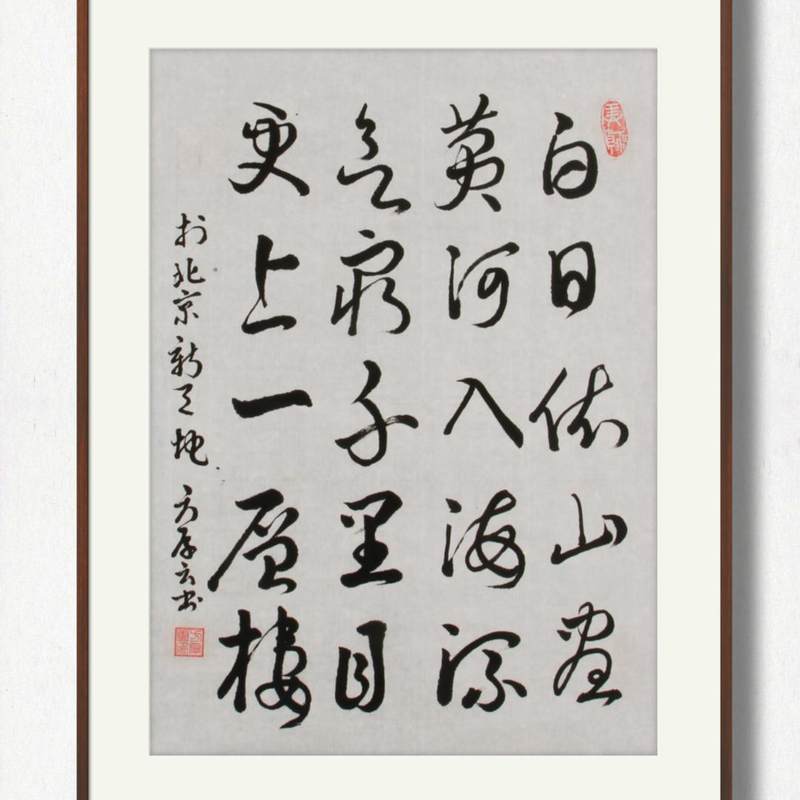 白日依山盡
黄河入海流
欲窮千里目
更上一層樓
於北京新天地